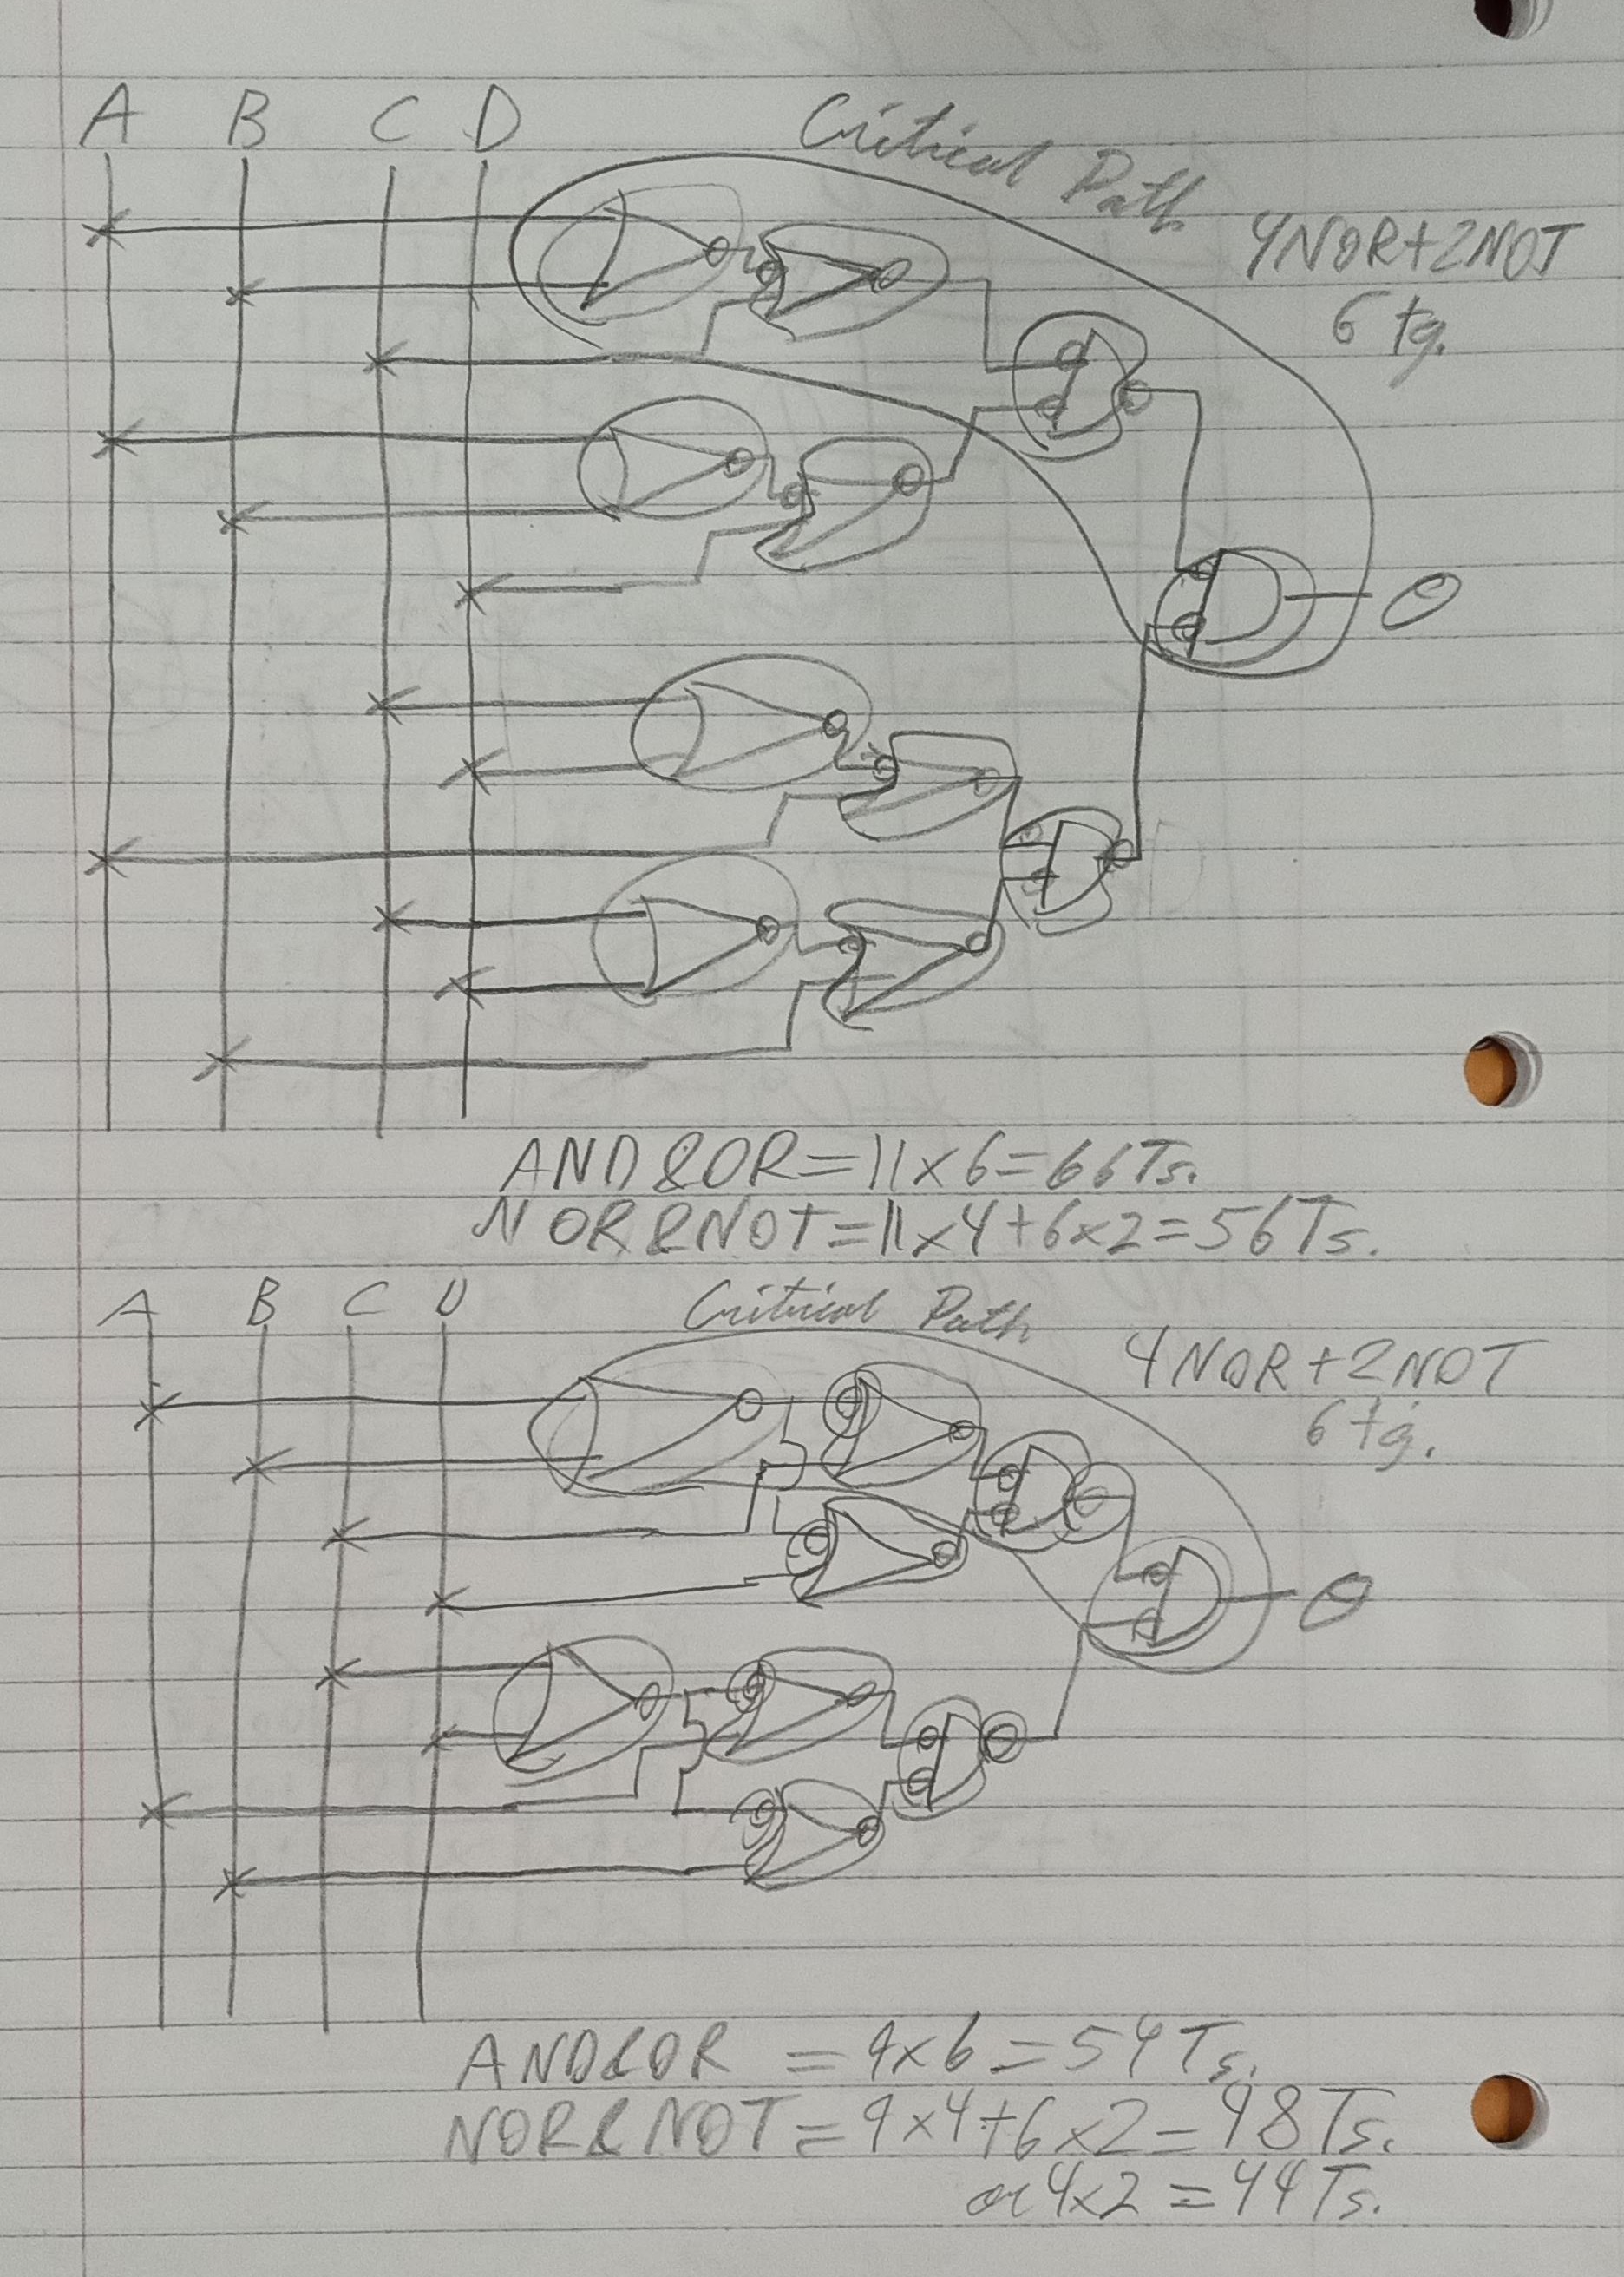 A B C D
Critical Path
4NOR+2NOT
6 tg.
O
AND&OR=11x6=66Ts.
NOR&NOT=11x4+6x2=56Ts.
A B C D
Critical Path
4NOR+2NOT
6 tg.
O
AND&OR = 9x6=54Ts.
NOR&NOT=9x4+6x2=48Ts.
or 4x2=44Ts.